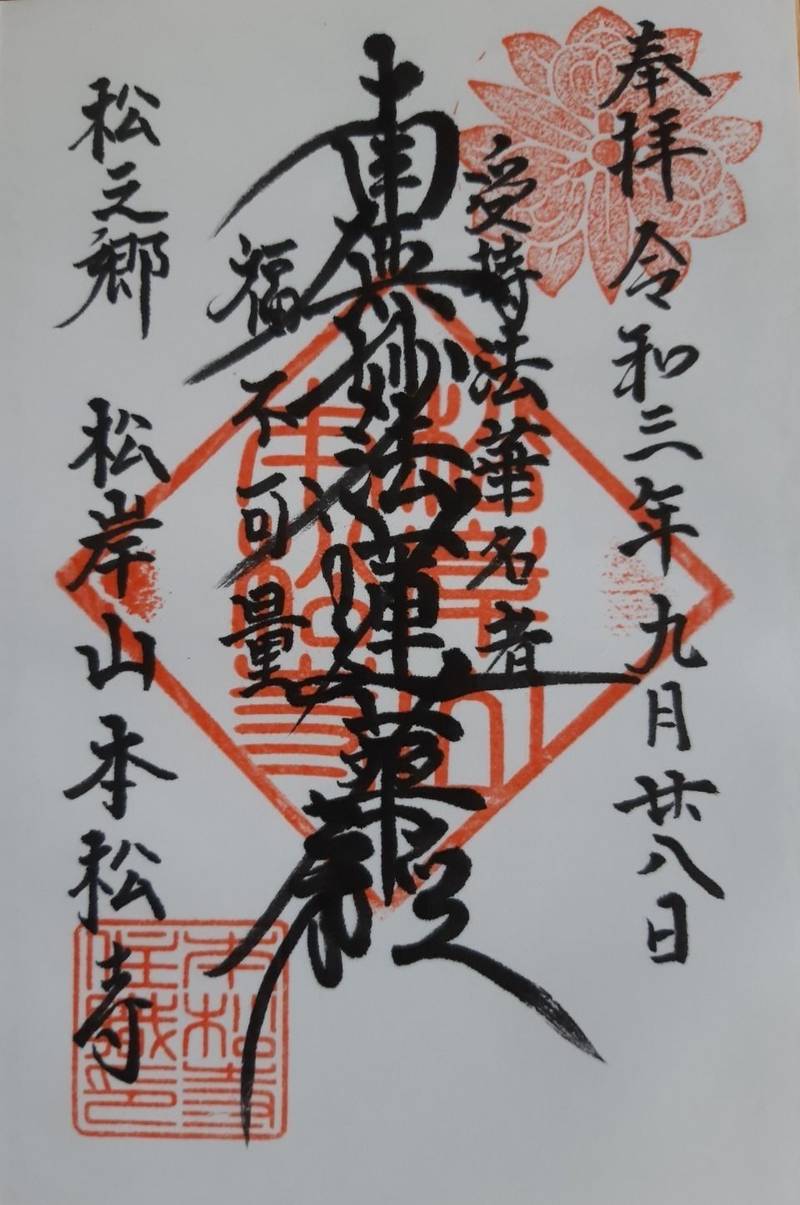 奉拝 令和三年九月廿八日
受持法華名者
南無妙法蓮華経
福不可量
松之郷 松岸山本松寺
本松寺
住職之印